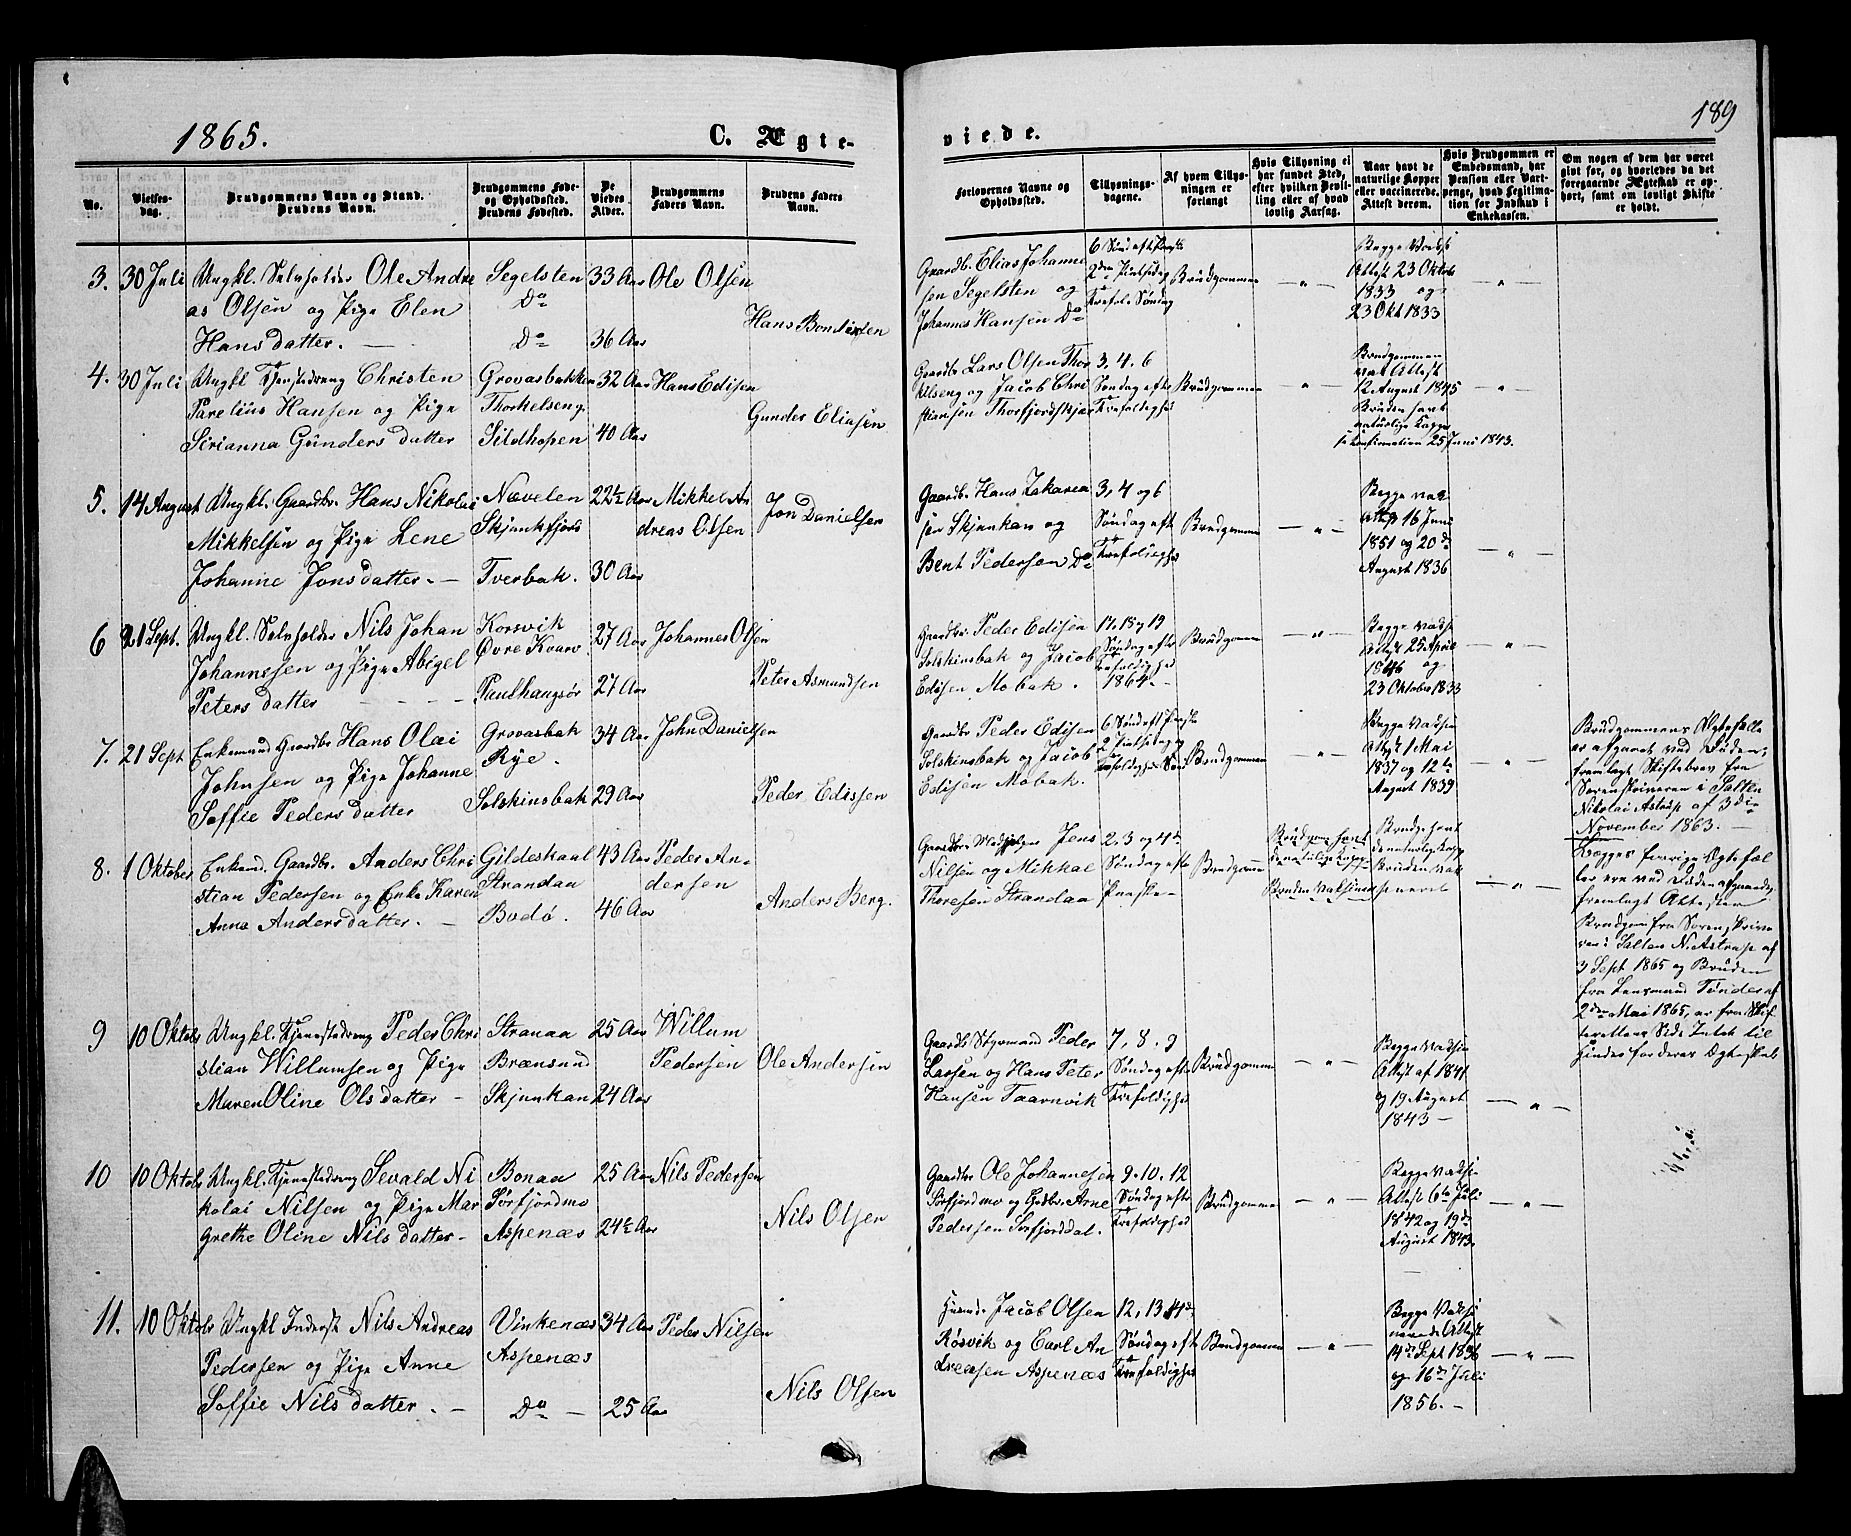 189
1865. C. Ægte-
viede.
No.
Vielses-
dag.
Brudgommens Navn og Stand.
Brudens Navn.
Brudgommens Føde-
og Opholdssted.
Brudens Fødested.
De
Viedes
Alder.
Brudgommens
Faders Navn.
Brudens Faders
Navn.
Forlovernes Navne og
Opholdssted.
Tillysnings-
dagene.
Af hvem Tillys-
ningen er
forlangt
Hvis Tillysning ei
har fundet Sted,
efter hvilken Bevil-
ling eller af hvad
lovlig Aarsag.
Naar havt de
naturlige Kopper
eller vaccinerede.
Attest derom.
Hvis Brudgommen er
Embedsmand, har
Pension eller Vart-
penge, hvad Legitima-
tion for Indskud i
Enkekassen.
Om nogen af dem har været
gift før, og hvorledes da det
foregaaende Ægteskab er op-
hørt, samt om lovligt Skifte
er holdt.
3. 30 Juli Ungkl. Selveholder Ole Andre
as Olsen og Pige Elen
Hansdatter. —
Segelsten
Do
Do
33 Aar
36 Aar
Ole Olsen
Hans Bendixsen
Gaardb. Elias Johanne
sen Segelsten og
Johannes Hansen Do
6 Sønd eft Paaske
2den Pintsedag
Trefol. Søndag
Brudgommen
— " —
Begge Vacs
Attest 23 Oktob
1833 og
23 Okt 1833
— " —
4. 30 Juli Ungkl Tjenestedreng Christen
Parelius Hansen og Pige
Serianna Gunders datter
Grovasbakken
Thorkelseng
Sildhopen
32 Aar
40 Aar
Hans Edisen
Gunder Eliasen
Gaardb Lars Olsen Thor
kelseng og Jacob Chri
stiansen Thorfjordskjær
3. 4. 6
Søndag efter
Trefoldighed
Brudgommen
— " —
Brudgommen
vac Attest
12 August 1845
Bruden havt
naturlige Kopper
se konfirmation 25 Juni 1843.
— " —
5. 14 August Ungkl. Gaardbr. Hans Nikolai
Mikkelsen og Pige Lene
Johanne Jonsdatter. —
Nævelen
Skjunkfjord
Tverbak.
22½ Aar
30 Aar
Mikkel An
dreas Olsen
Jon Danielsen
Gaardb. Hans Zakaria
sen Skjunkan og
Bent Pedersen Do
3, 4 og 6
Søndag eft
Trefoldighed
Brudgommen
— " —
Begge vac
Attest 16 Juni
1851 og 20de
August 1836
— " —
6 21 Sept. Ungkl. Selveholder Nils Johan
Johannesen og Pige Abigel
Peters datter — — — —
Korsvik
Øvre Kvarv
Paulhangsør
27 Aar
27 Aar
Johannes Olsen
Peter Asmundsen
Gaardbr. Peder Edisen
Solskinsbak og Jacob
Edisen Mobak.
17. 18 og 19
Søndag efter
Trefoldighed
1864. —
Brudgommen
— " —
Begge vacse
Attest 25 April
1846 og
23 Oktober 1833
— " —
7. 21 Sept Enkemand Gaardbr Hans Olai
Johnsen og Pige Johanne
Soffie Peders datter
Grovasbak
Rye.
Solskinsbak
34 Aar
29 Aar
John Danielsen
Peder Edissen
Gaardbr Peder Edisen
Solskinsbak og Jacob
Edisen Mobak.
6 Sønd eft Paaske
2 Pintsedag og
Trefoldighed Sønd
Brudgommen
— " —
Begge vacsin
Attest 1 Mai
1837 og 12te
August 1839
— " —
Brudgommens Ægtefælle
er afgaaet ved Døden,
fremlagt Skiftebrev fra
Sorenskriveren i Salten
Nikolai Astrup af 3die
November 1863. —
8. 1 Oktober Enkemd. Gaardbr. Anders Chri
stian Pedersen og Enke Karen
Anna Andersdatter. —
Gildeskaal
Strandaa
Bodø.
43 Aar
46 Aar
Peder An-
dersen
Anders Berg.
Gaardbr Jens
Nilsen og Mikkal
Thoresen Strandaa
2. 3 og 4de
Søndag efter
Paaske —
Brudgomme
Brudgom havt
de naturlige Kopp
Bruden vaksineret
Brudgo havt
de naturlige Kopp
Bruden vak
sineret
— " —
Begges forrige Ægtefæl
ler ere ved Døden afgaaede,
fremlagt Attester
Brudgom fra Sorenskrive
ren i Salten N. Astrup af
3 Sept 1865 og Bruden
fra Lensmand Tønder af
2den Mai 1865, er fra Skif
terettens Side Intet til
Hinder for deres Ægteskab
9 10 Oktob Ungkl. Tjenestedreng Peder Chri
stian Willumsen og Pige
Maren Oline Olsdatter —
Stranaa
Brænsund
Skjunkan
25 Aar
24 Aar
Willum
Pedersen
Ole Andersen
Gaardb Styrmand Peder
Lassen og Hans Peter
Hansen Taarnvik
7, 8. 9
Søndag efter
Trefoldighed
Brudgomme
— " —
Begge Vaksin
Attest af 1841
og 19 August
1843 —
— " —
10 10 Oktob Ungkl. Tjenestedreng Sevald Ni
kolai Nilsen og Pige Mar
grethe Oline Nils datter —
Bonaa
Sørfjordmo
Aspenæs
25 Aar
24½ Aar
Nils Pedersen
Nils Olsen
Gaardbr Ole Johannesen
Sørfjordmo og Gaardbr. Arne
Pedersen Sørfjorddal.
9. 10. 12
Søndag efter
Trefoldighed
Brudgomme
— " —
Begge vaksi
Attest 6te Juli
1842 og 19de
August 1843.
— " —
11. 10 Oktob Ungkl Inderst Nils Andreas
Pedersen og Pige Anne
Soffie Nils datter. —
Vinkenæs
Aspenæs
Do —
34 Aar
25 Aar
Peder Nilsen
Nils Olsen
Husmd. Jacob Olsen
Røsvik og Carl An
dreasen Aspenæs
12, 13. 14de
Søndag eft
Trefoldighed
Brudgomme
— " —
Begge Vaksi
nerede Attest
14de Sept 1836
og 16de Juli
1856. —
— " —